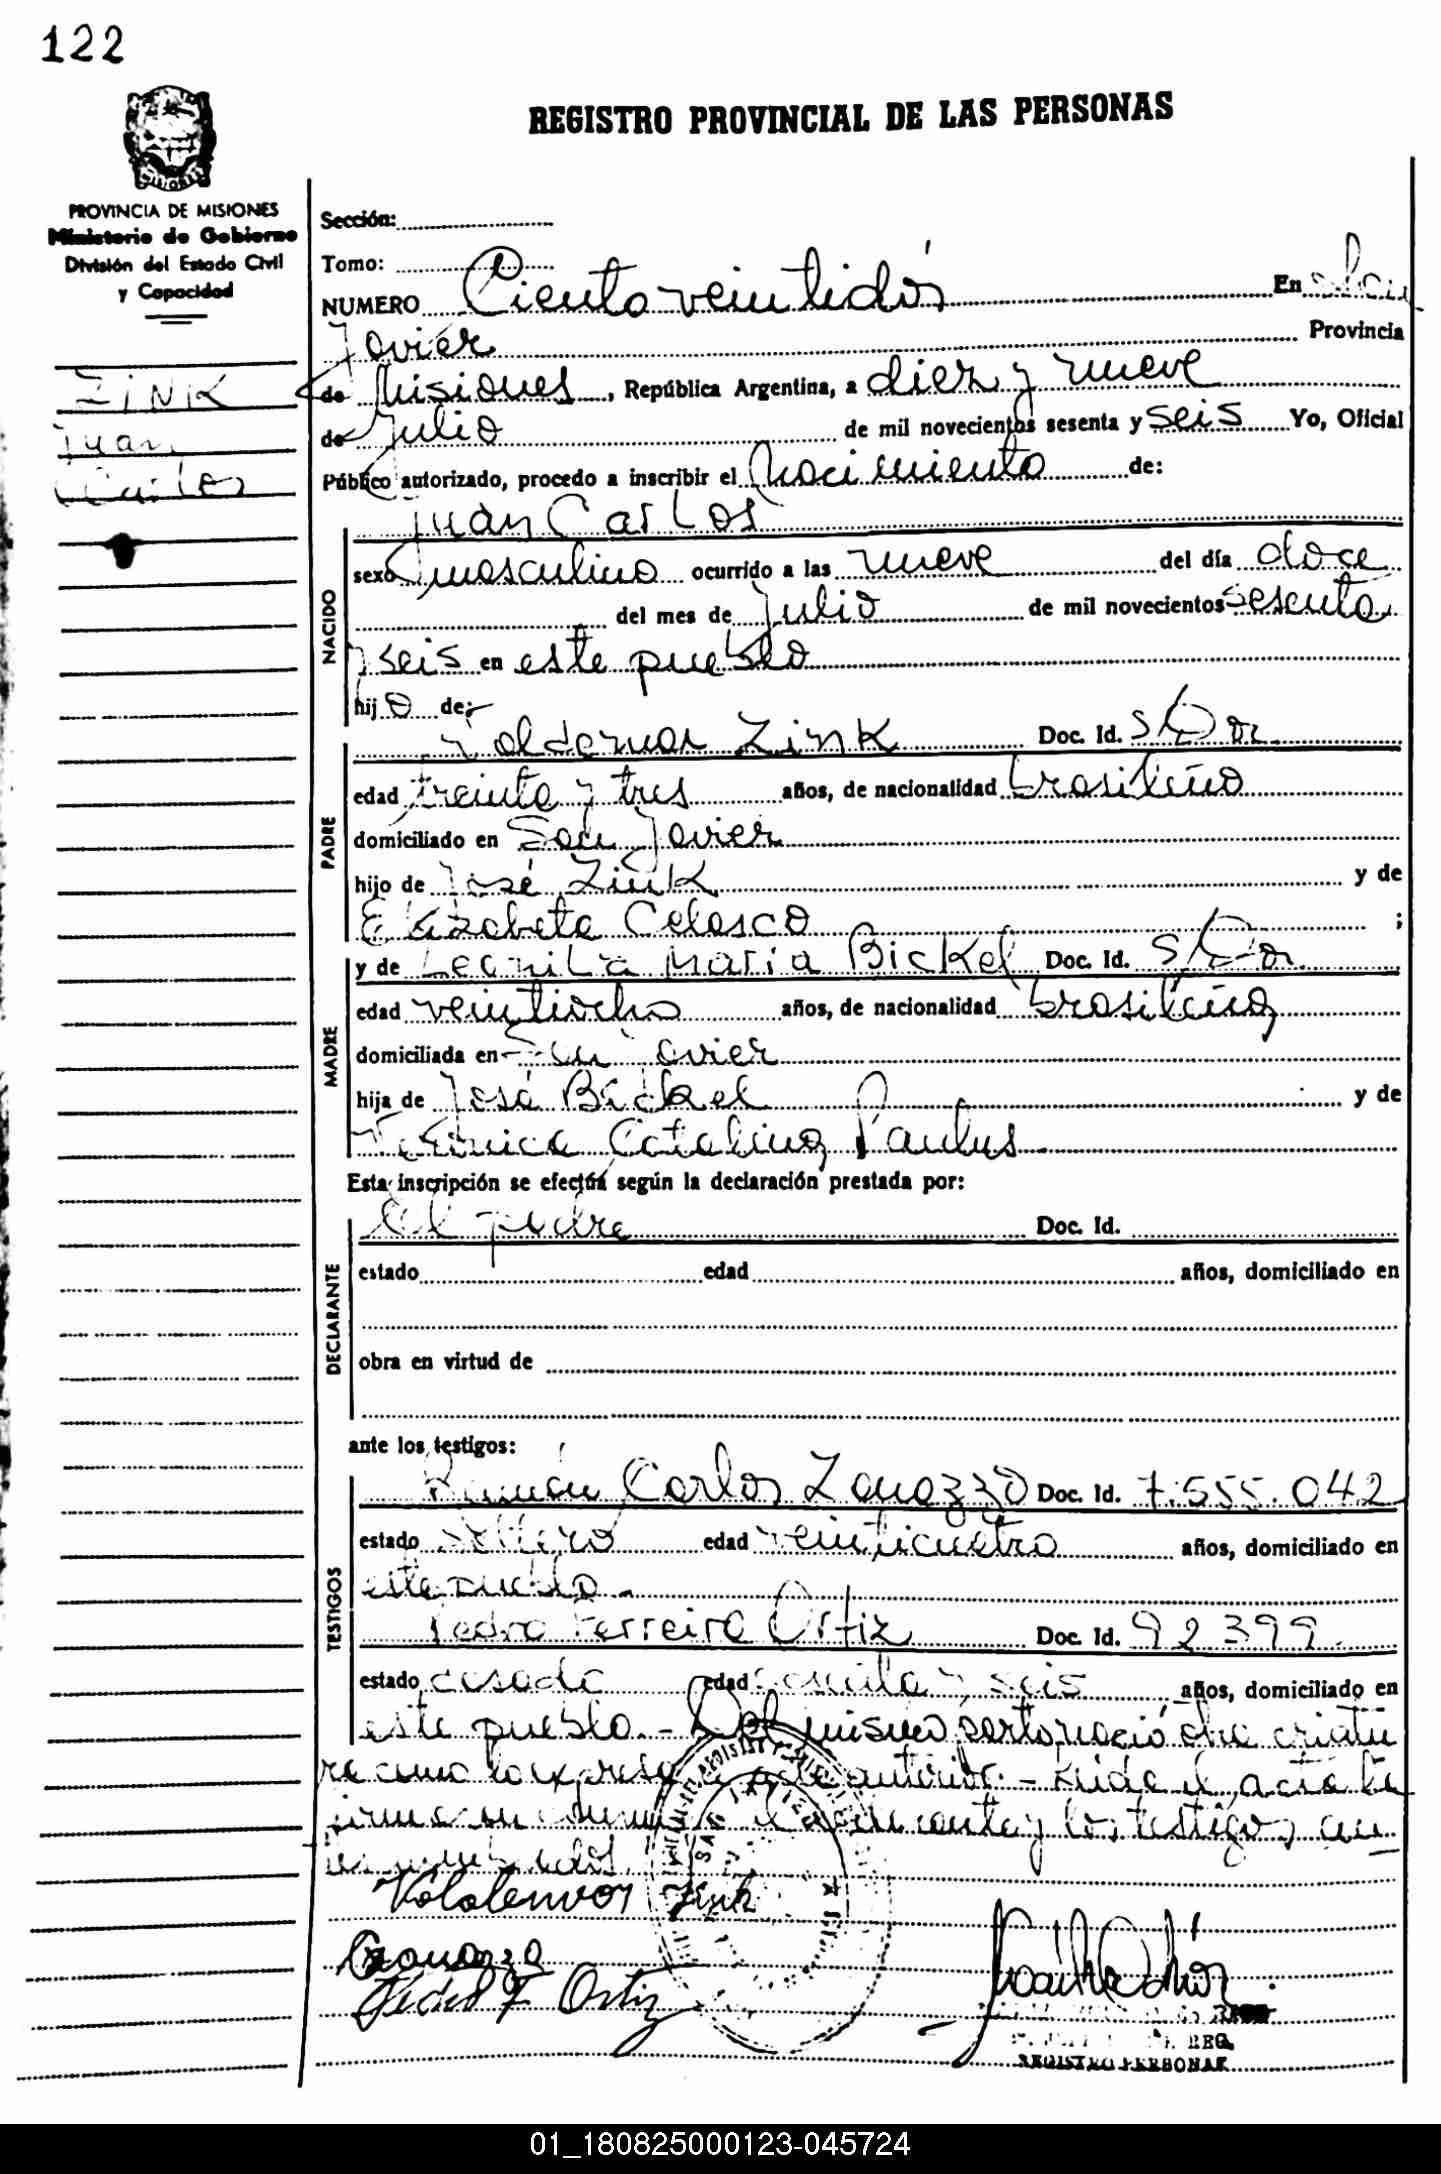 122
REGISTRO PROVINCIAL DE LAS PERSONAS
PROVINCIA DE MISIONES
Ministerio de Gobierno
División del Estado Civil
y Capacidad
ZINK
Juan
Carlos
Sección:
Tomo:
NUMERO Ciento veintidós En San
Javier Provincia
de Misiones, República Argentina, a diez y nueve
de Julio de mil novecientos sesenta y seis Yo, Oficial
Público autorizado, procedo a inscribir el Nacimiento de:
Juan Carlos
NACIDO
sexo masculino ocurrido a las nueve del día doce
del mes de Julio de mil novecientos sesenta
y seis en este pueblo
hijo de:
PADRE
Valdemar Zink Doc. Id. s/
edad treinta y tres años, de nacionalidad brasileño
domiciliado en San Javier
hijo de José Zink y de
Elizabeta Celasco ;
MADRE
y de Leonila Maria Bickel Doc. Id. s/
edad veintiocho años, de nacionalidad brasileña
domiciliada en San Javier
hija de José Bickel y de
Verónica Catalina Paulus
Esta inscripción se efectúa según la declaración prestada por:
DECLARANTE
el padre Doc. Id.
estado edad años, domiciliado en
obra en virtud de
ante los testigos:
TESTIGOS
Ramón Carlos Zanazzo Doc. Id. 7.555.042
estado soltero edad veinticuatro años, domiciliado en
este pueblo.-
Pedro Ferreira Ortiz Doc. Id. 92399
estado casado edad y seis años, domiciliado en
este pueblo.- mismo parto nació otra criatu
ra como lo expresa el acta anterior.- Leida el acta la
firma y los testigos an
tes nombrados
Valdemar Zink
Pedro F Ortiz
SAN JAVIER
REG.
REGISTRO PERSONAS
01_180825000123-045724